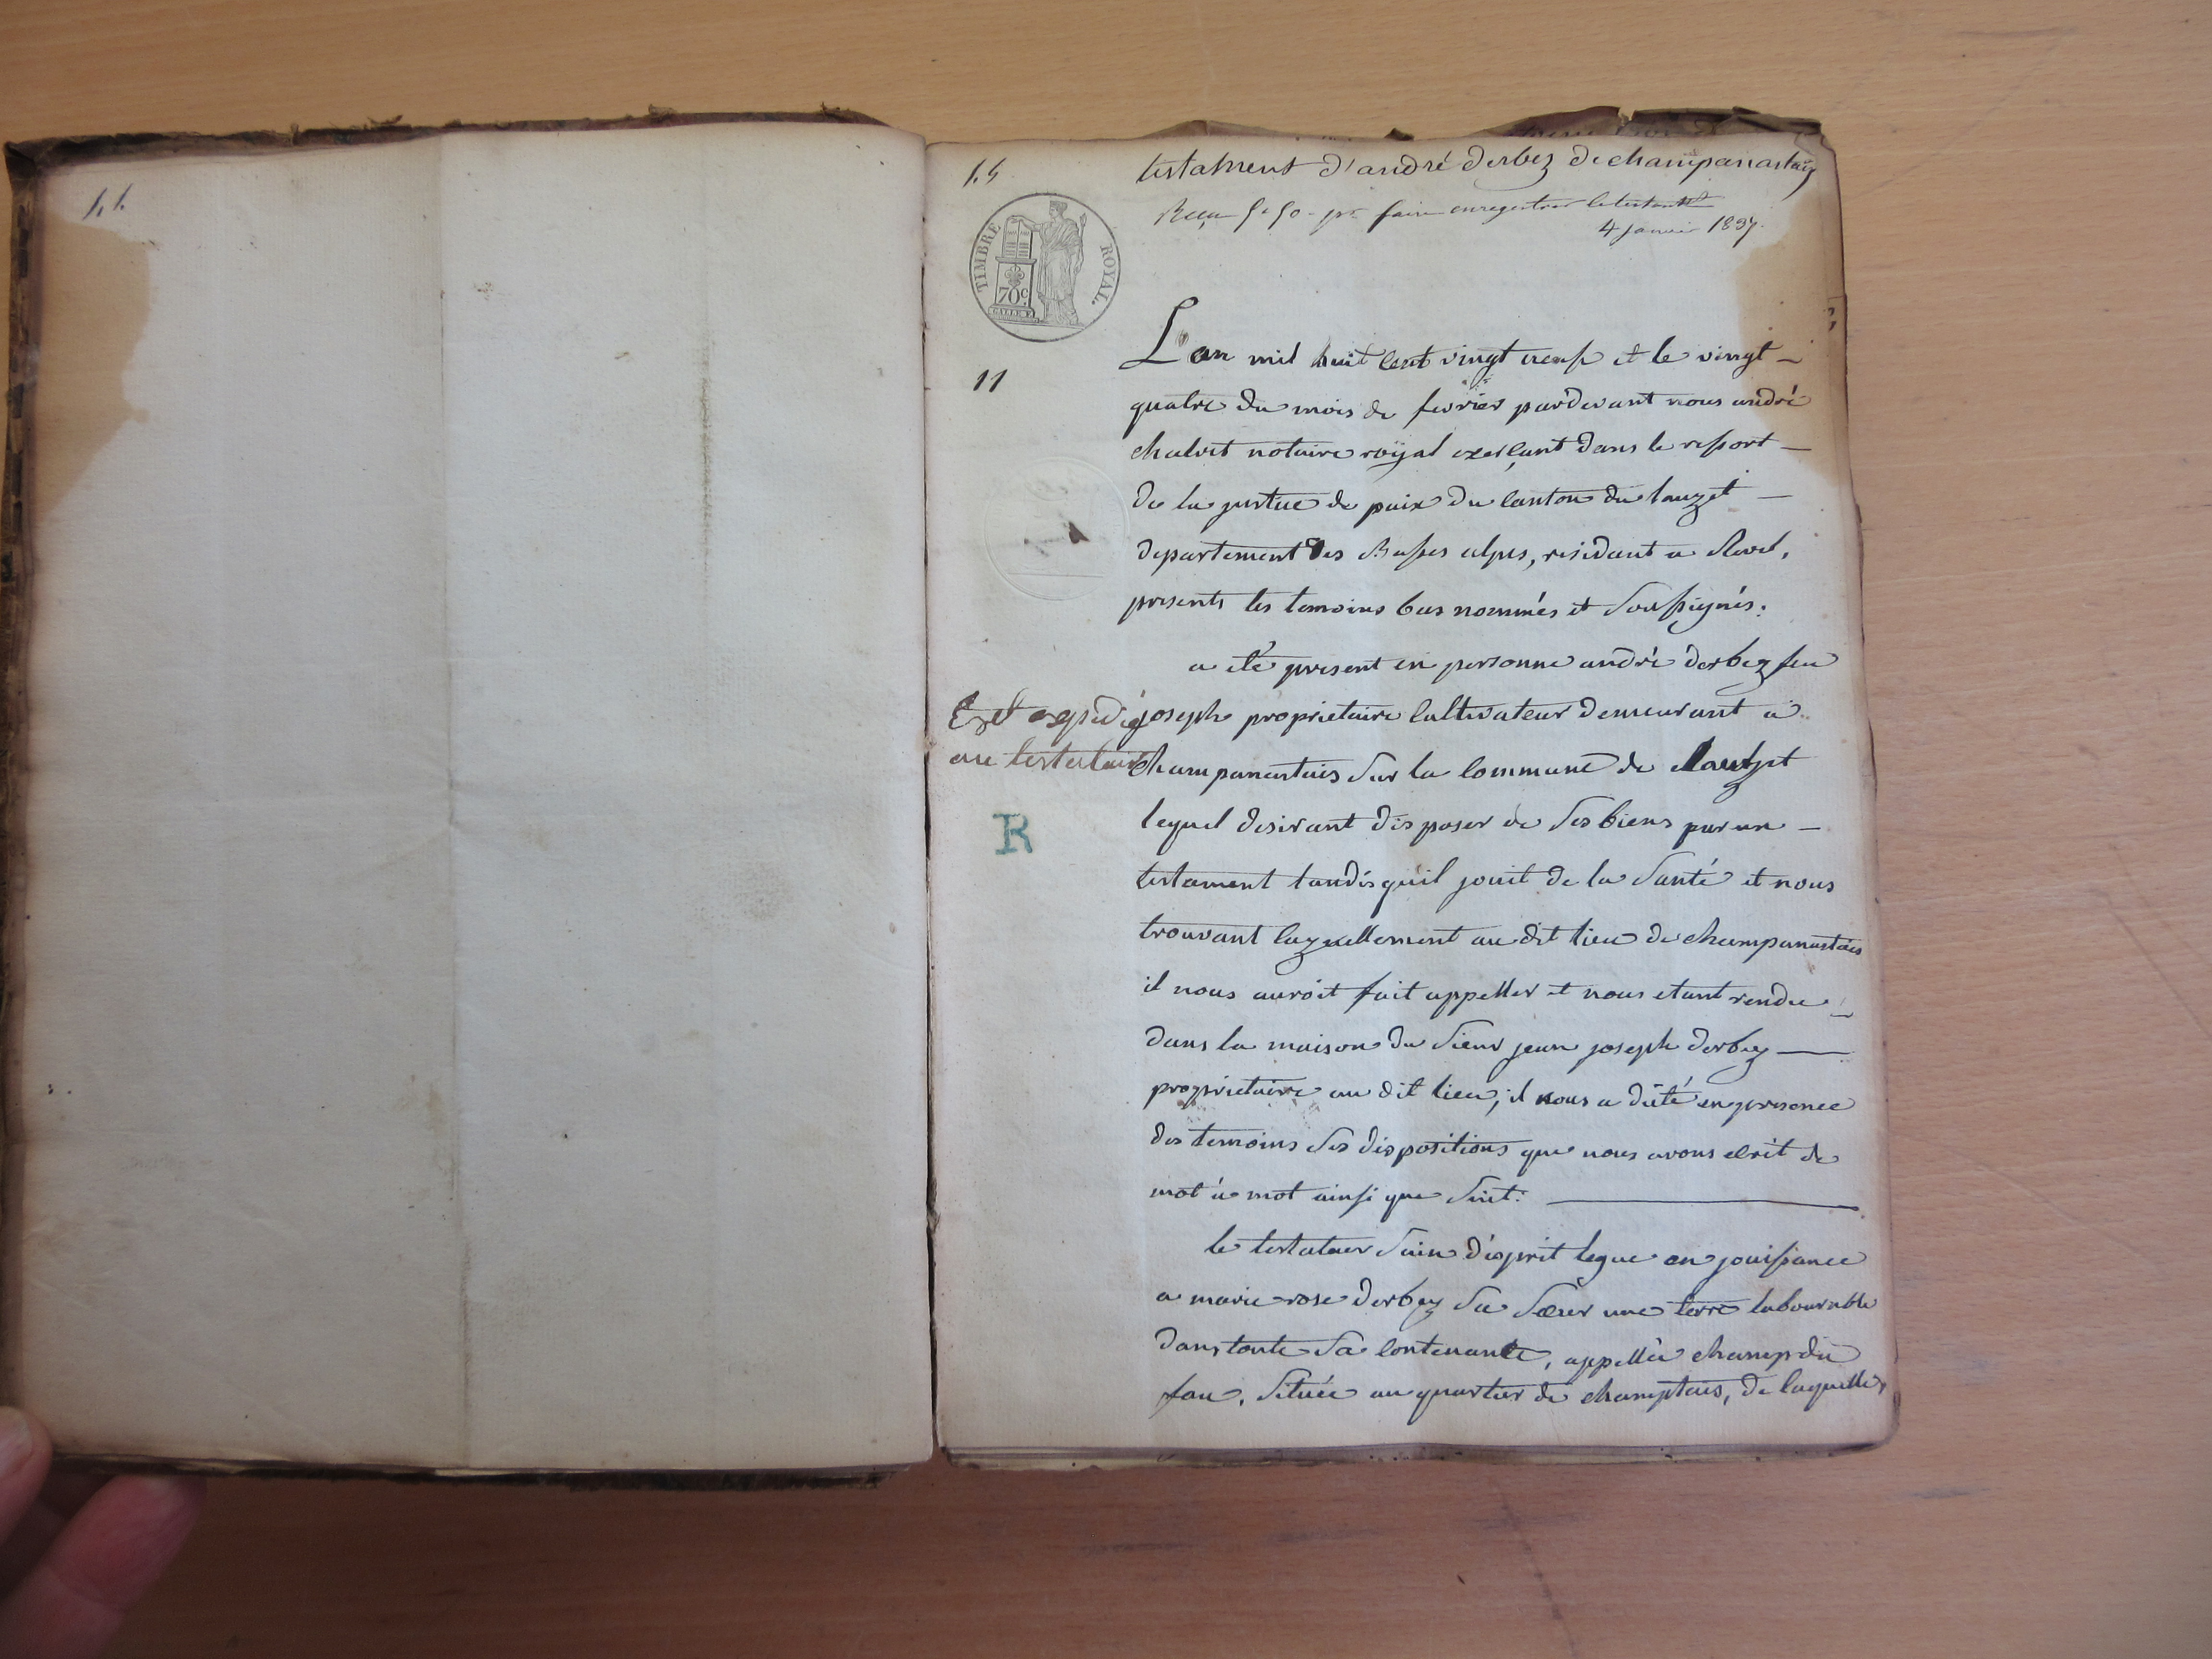 1.1.
1.4
testament d'andré derbez de champanastais
Reçu 5f 50 pr faire enregistrer le testamt
4 janvier 1837
TIMBRE ROYAL.
70c.
11
L'an mil huit cent vingt neuf et le vingt
quatre du mois de fevrier pardevant nous andré
chalvet notaire royal exerçant dans le ressort
de la justice de paix du canton du lauzet
departement des Basses alpes, residant a Revel,
presents les temoins bas nommés et soussignés:
a été present en personne andré derbez feu
Exst expedié joseph proprietaire cultivateur demeurant a
au testateur champanastais sur la commune de Lauzet
R
lequel desirant disposer de ses biens par un
testament tandis qu'il jouit de la santé et nous
trouvant cazuellement au dit lieu de champanastais
il nous auroit fait appeller et nous etant rendu
dans la maison du sieur jean joseph derbez
proprietaire au dit lieu, il nous a dicté en presence
des temoins ses dispositions que nous avons ecrit de
mot à mot ainsi que suit:
le testateur sain d'esprit legue en jouissance
a marie rose derbez sa sœur une terre labourable
dans toute sa contenance, appellée champ du
fau, située au quartier de champtais, de laquelle